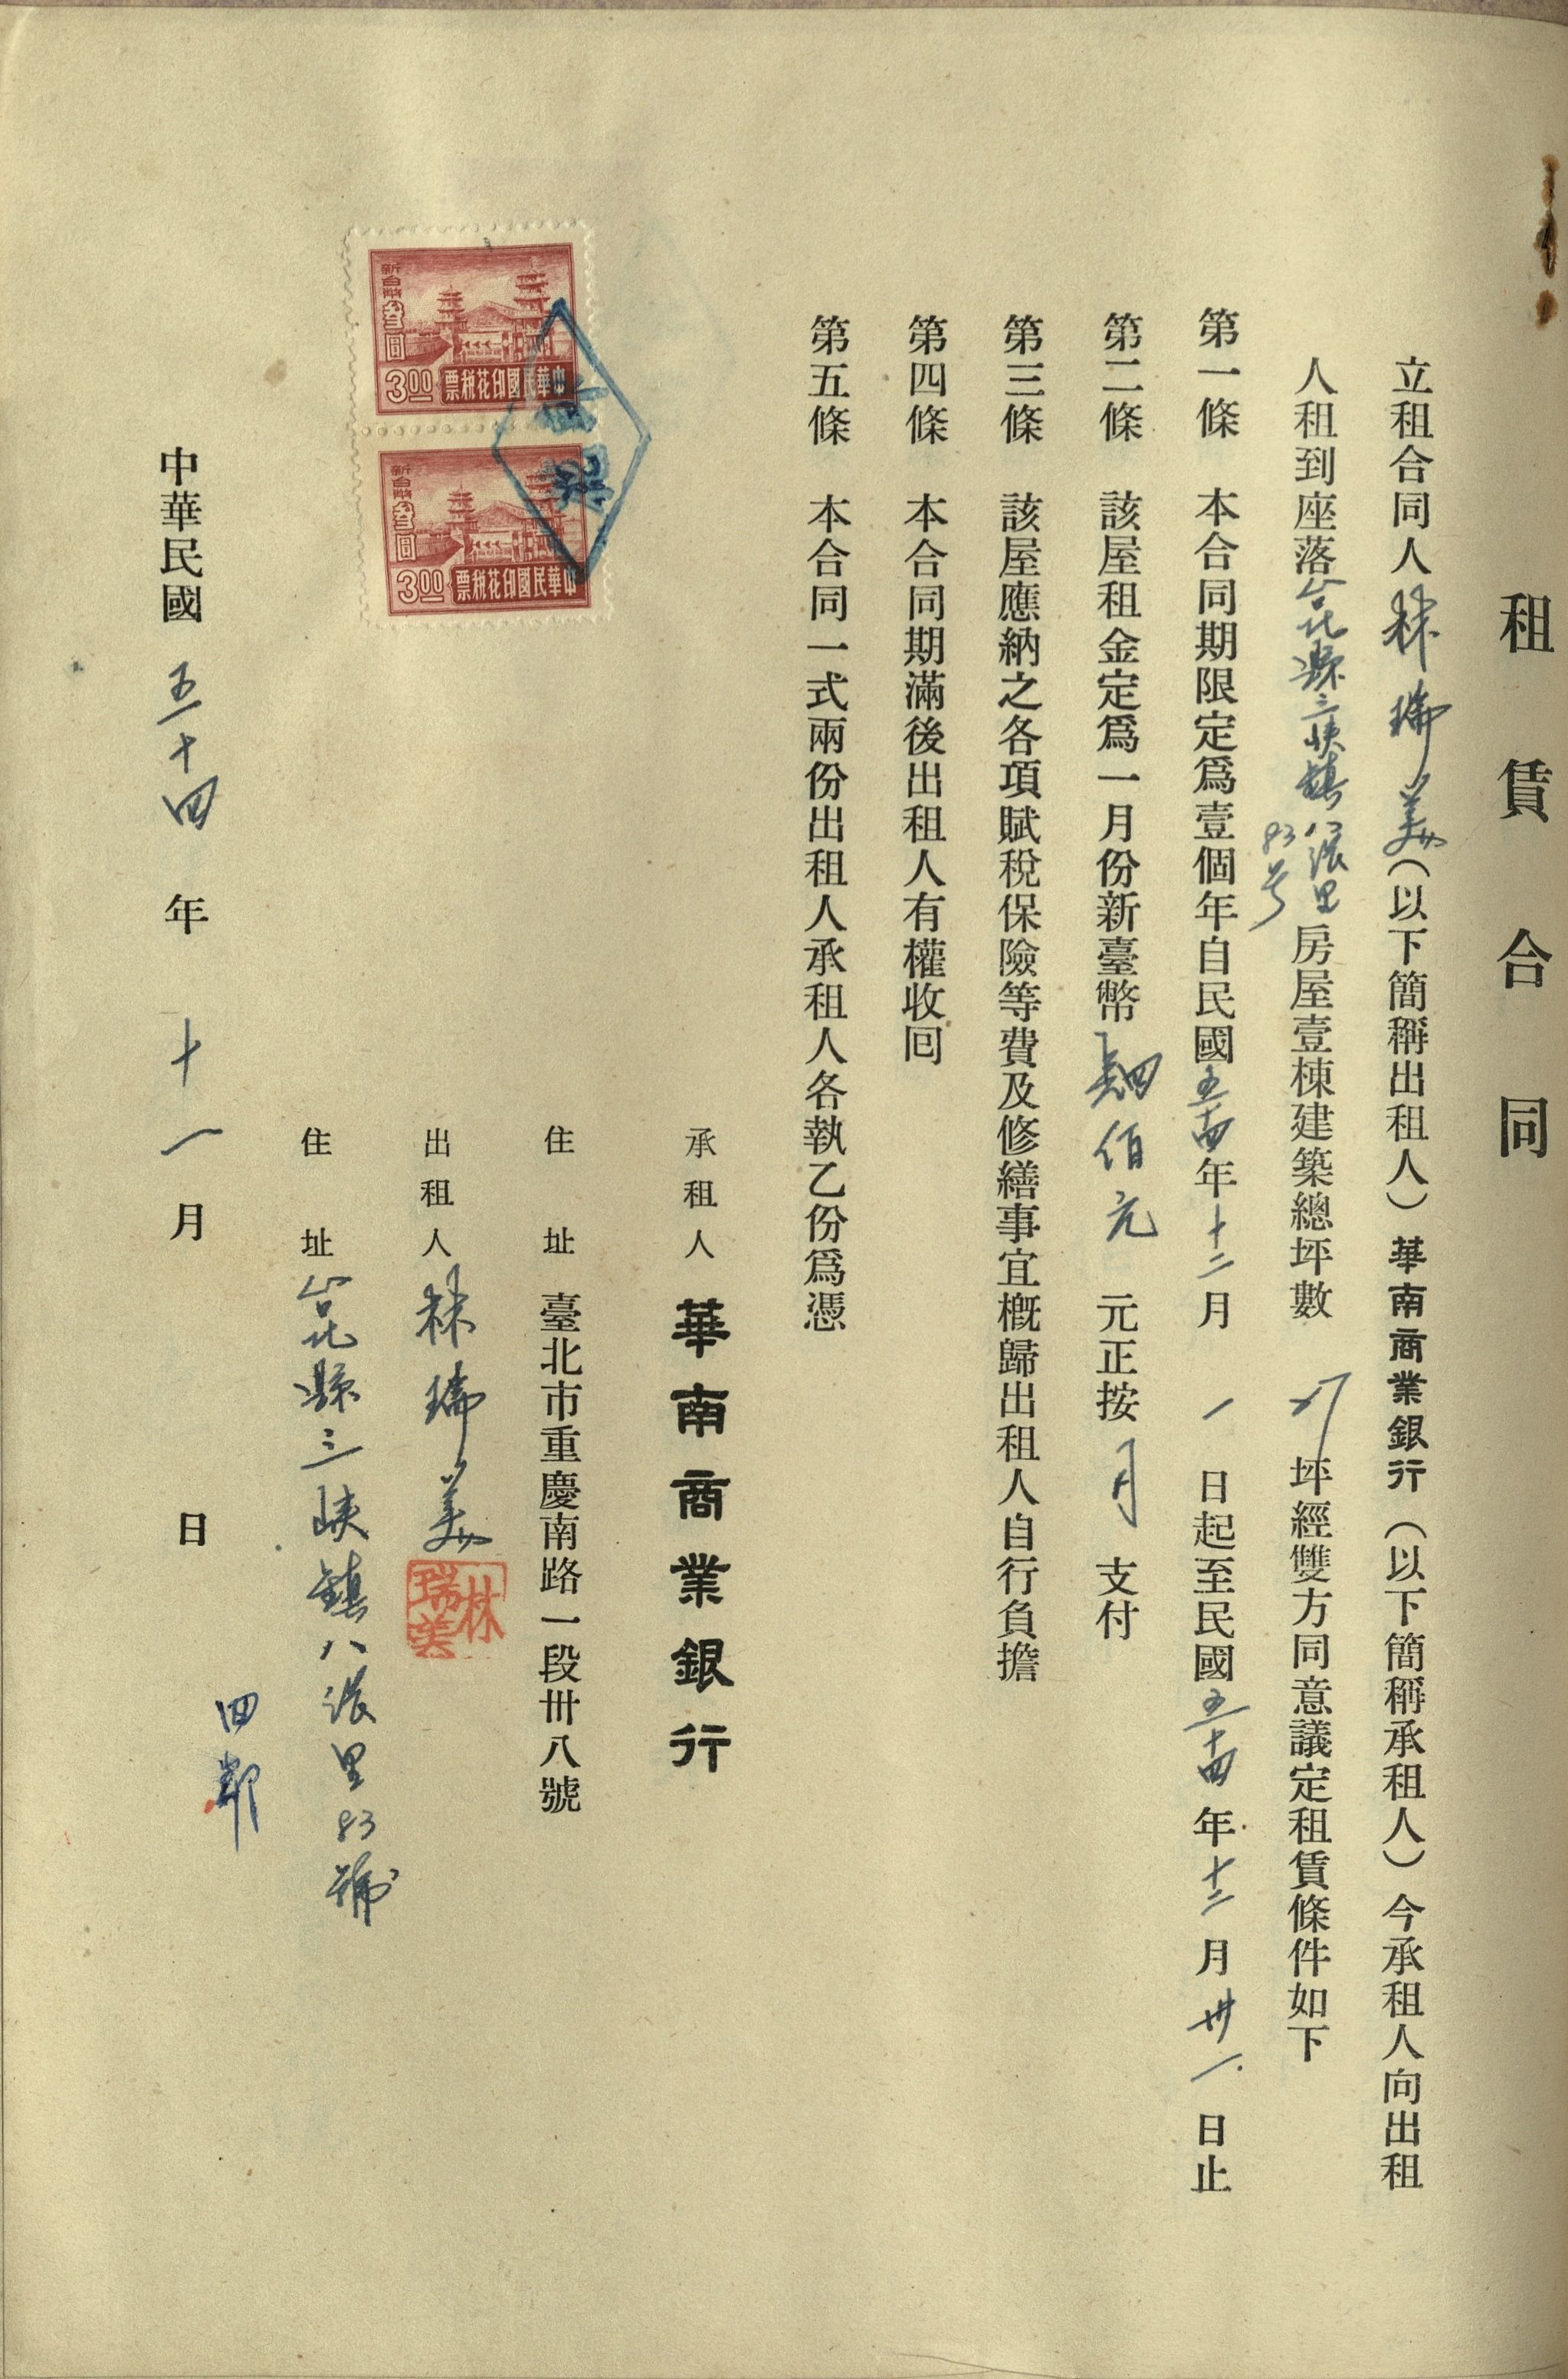 租賃合同
立租合同人林瑞美(以下簡稱出租人)華南商業銀行(以下簡稱承租人)今承租人向出租
人租到座落台北縣三峽鎮八張里83号房屋壹棟建築總坪數 坪經雙方同意議定租賃條件如下
第一條 本合同期限定爲壹個年自民國五十四年十二月一日起至民國五十四年十二月卅一日止
第二條 該屋租金定爲一月份新臺幣 佰元元正按月支付
第三條 該屋應納之各項賦稅保險等費及修繕事宜概歸出租人自行負擔
第四條 本合同期滿後出租人有權收囘
第五條 本合同一式兩份出租人承租人各執乙份爲憑
承租人 華南商業銀行
住址 臺北市重慶南路一段卅八號
出租人 林瑞美
林瑞美
住址 台北縣三峽鎮八張里83號
四鄰
中華民國五十四年十一月 日
新台幣叁圓
3.00
中華民國印花稅票
新台幣叁圓
3.00
中華民國印花稅票